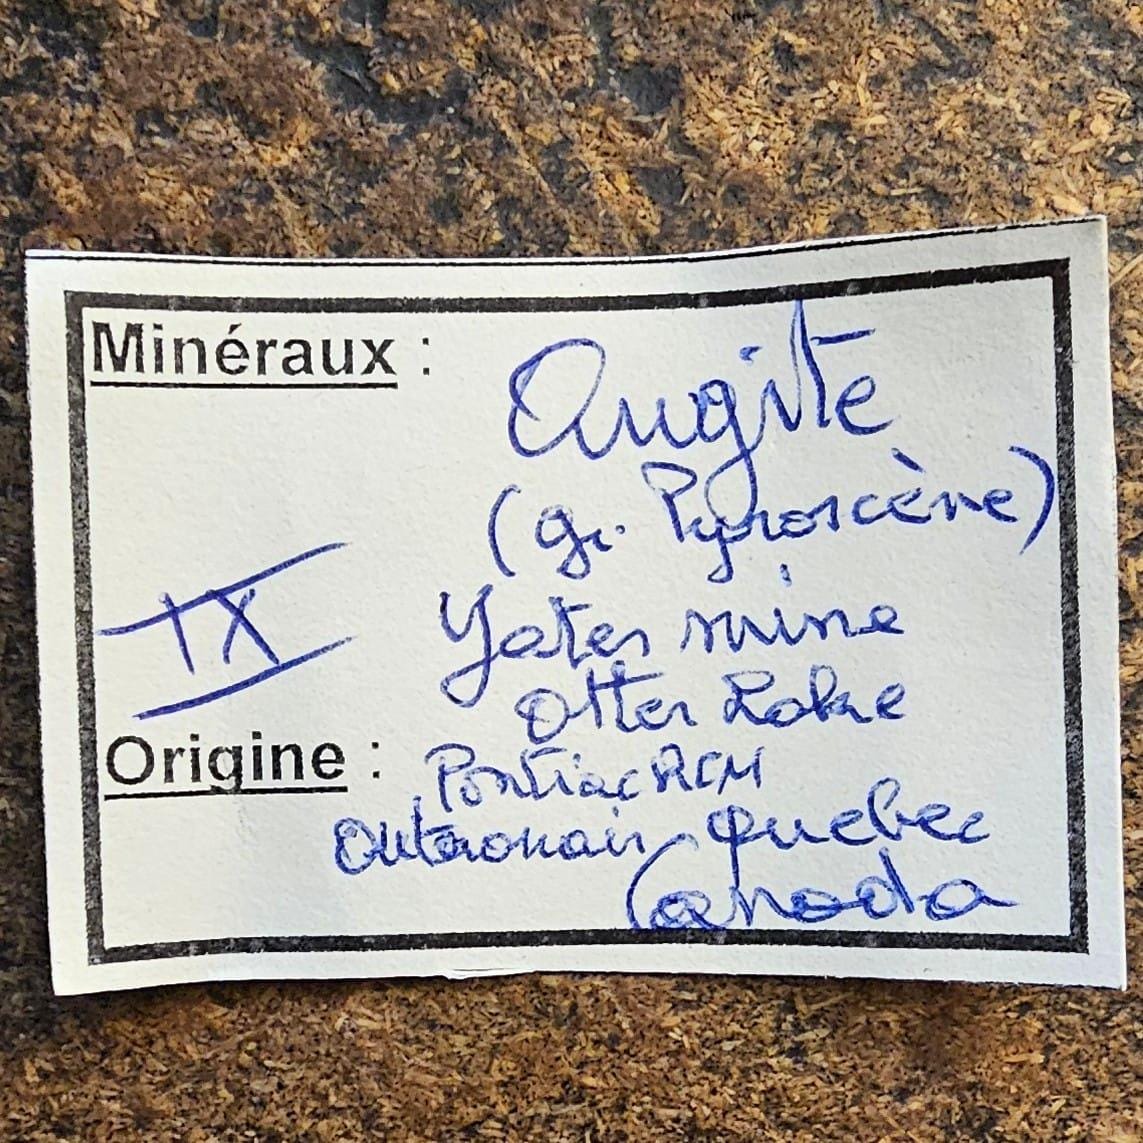 Minéraux : Augite
(gr. Pyroxcène)
IX Yates mine
Otter Lake
Origine : Pontiac RCM
Outaouais Quebec
Canada